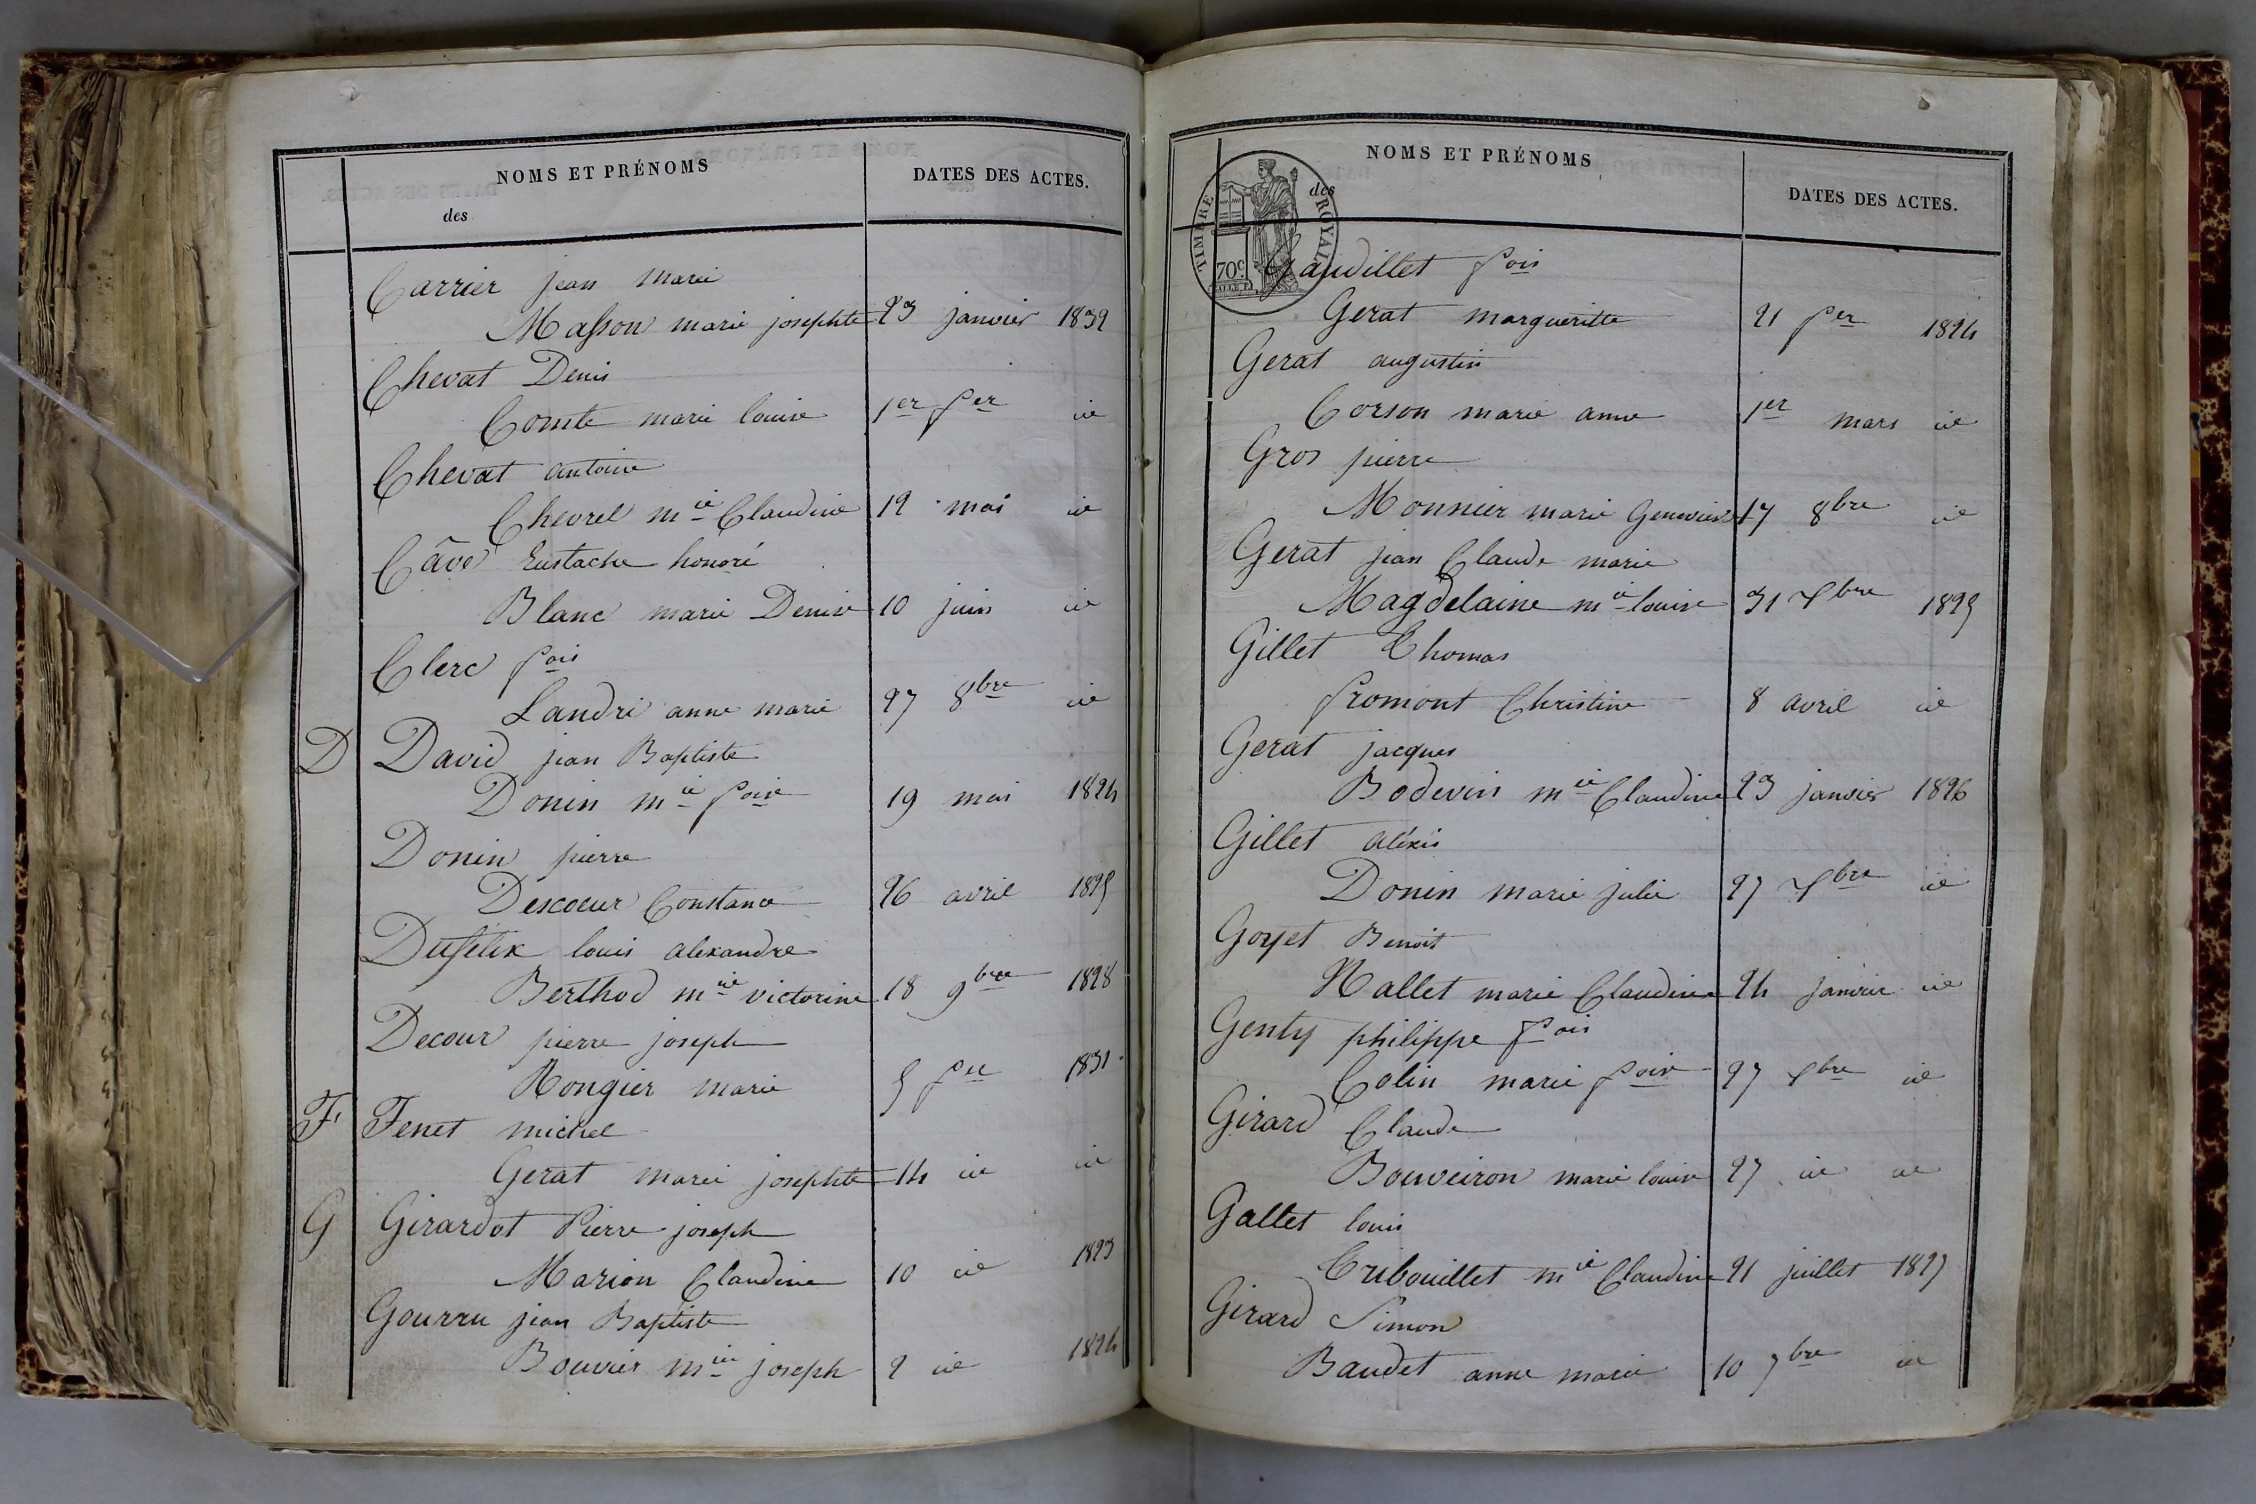 NOMS ET PRÉNOMS
des
DATES DES ACTES.
Carrier jean marie
Masson marie josephte 23 janvier 1832
Chevat Denis
Comte marie louise 1er fer id
Chevat antoine
Chevrel mie Claudine 12 mai id
Câve Eustache honoré
Blanc marie Denise 10 juin id
Clerc fois
Landri anne marie 27 8bre id
D David jean Baptiste
Donin mie foise 19 mai 1824
Donin pierre
Descoeur Constance 26 avril 1825
Dufélix louis alexandre
Berthod mie victorine 18 9bre 1828
Decour pierre joseph
Rongier marie 5 fer 1831
F Fenet michel
Gerat marie josephte 14 id id
G Girardot Pierre joseph
Marion Claudine 10 id 1823
Gourru jean Baptiste
Bouvier mie joseph 2 id 1824
NOMS ET PRÉNOMS
des
DATES DES ACTES.
TIMBRE ROYAL
70c
Gaudillet fois
Gerat margueritte 21 fer 1824
Gerat augustin
Corson marie anne 1er mars id
Gros pierre
Monnier marie Genevieve 17 8bre id
Gerat jean Claude marie
Magdelaine mie louise 31 xbre 1825
Gillet Thomas
fromont Christine 8 avril id
Gerat jacques
Bodevin mie Claudine 23 janvier 1826
Gillet aléxis
Donin marie julie 27 xbre id
Goyet Benoit
Nallet marie Claudine 24 janvier id
Genty philippe fois
Colin marie foise 27 xbre id
Girard Claude
Bouveiron marie louise 27 id id
Gallet louis
Tribouillet mie Claudine 21 juillet 1827
Girard Simon
Baudet anne marie 10 7bre id